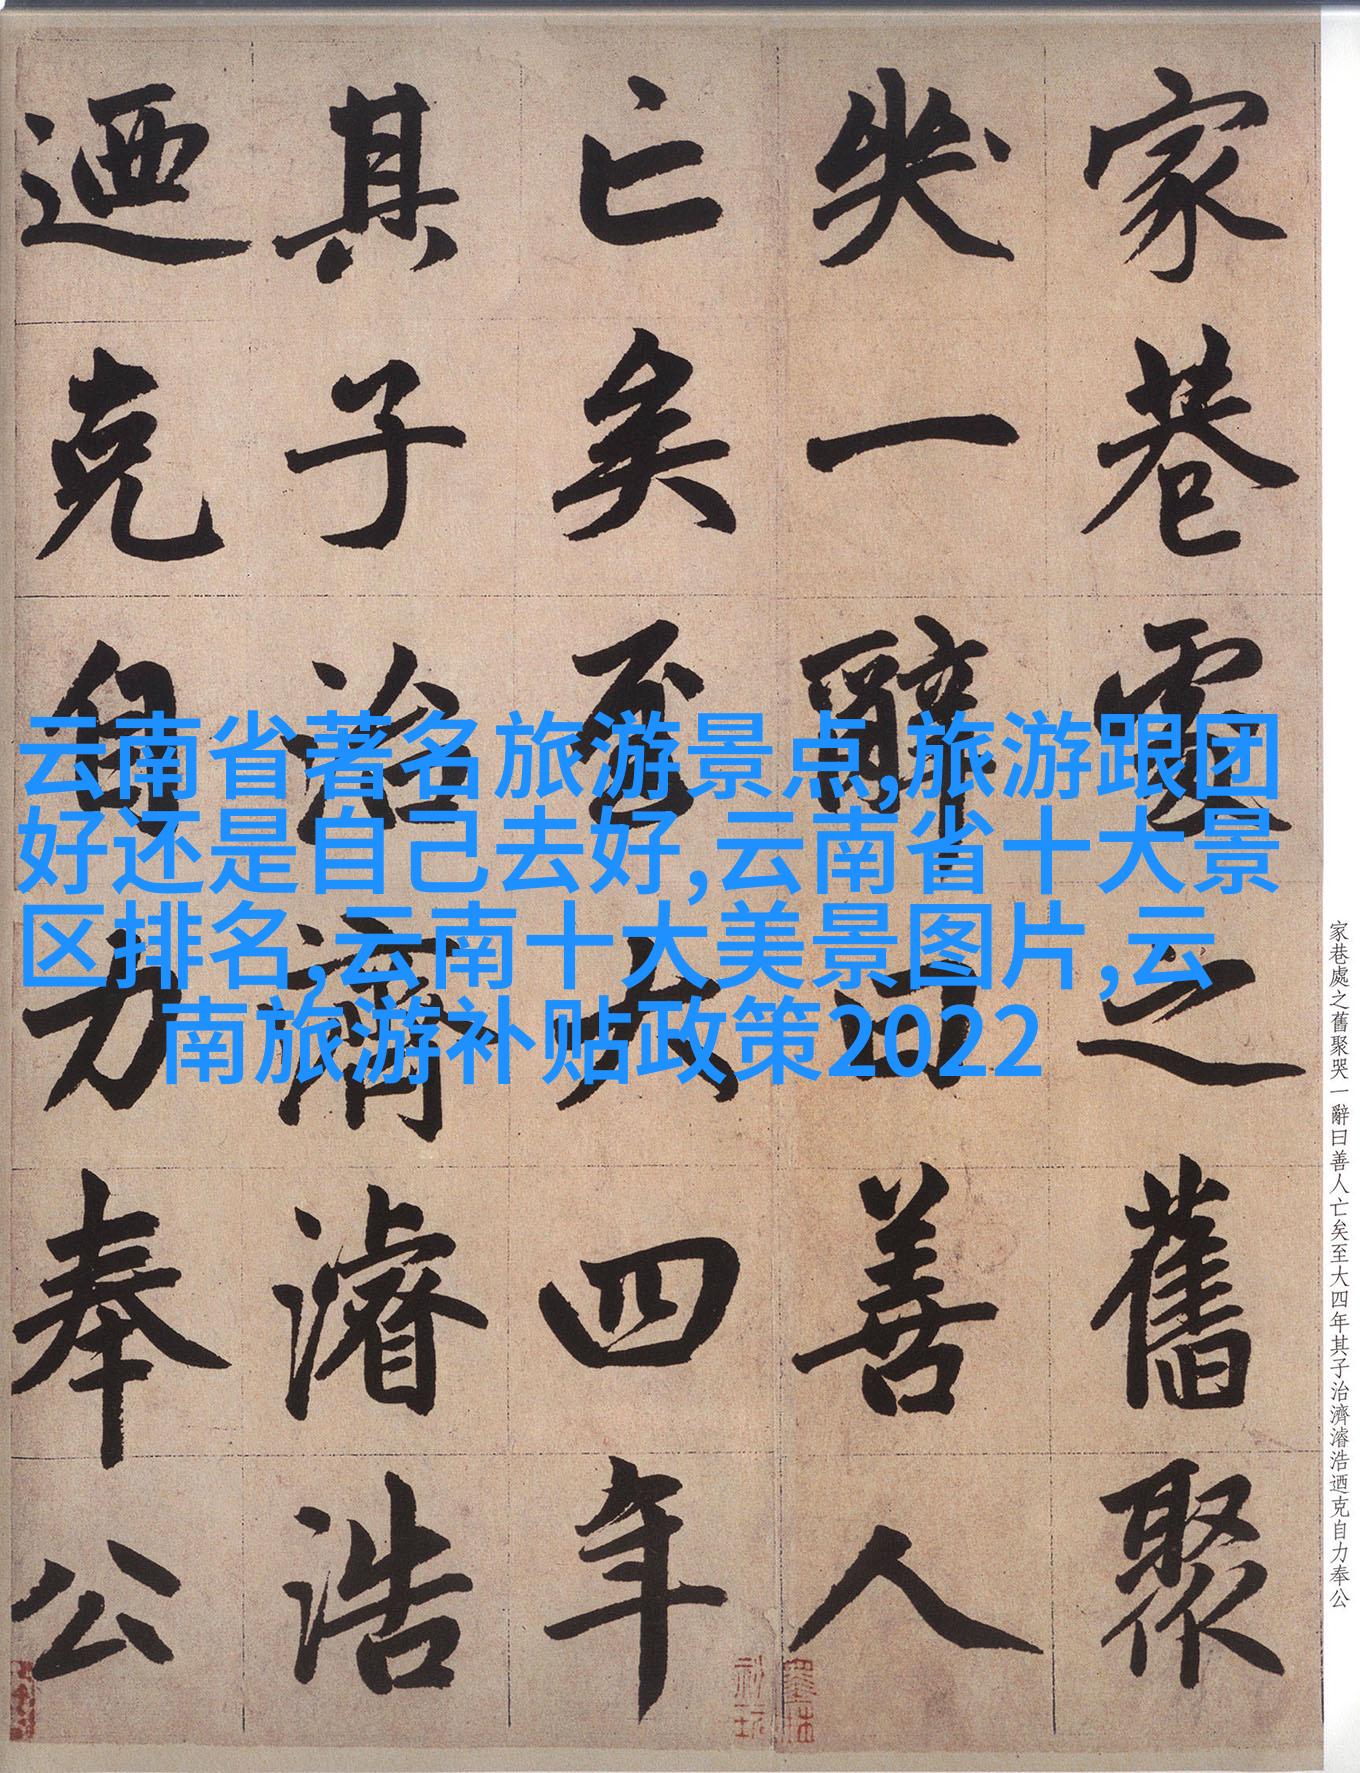 家巷處之舊聚
哭一辭曰善人
亡矣至大四年
其子治濟濬浩
迺克自力奉公
云南省著名旅游景点,旅游跟团
好还是自己去好,云南省十大景
区排名,云南十大美景图片,云
南旅游补贴政策2022
家巷處之舊聚哭一辭曰善人亡矣至大四年其子治濟濬浩迺克自力奉公
墨林
祕玩